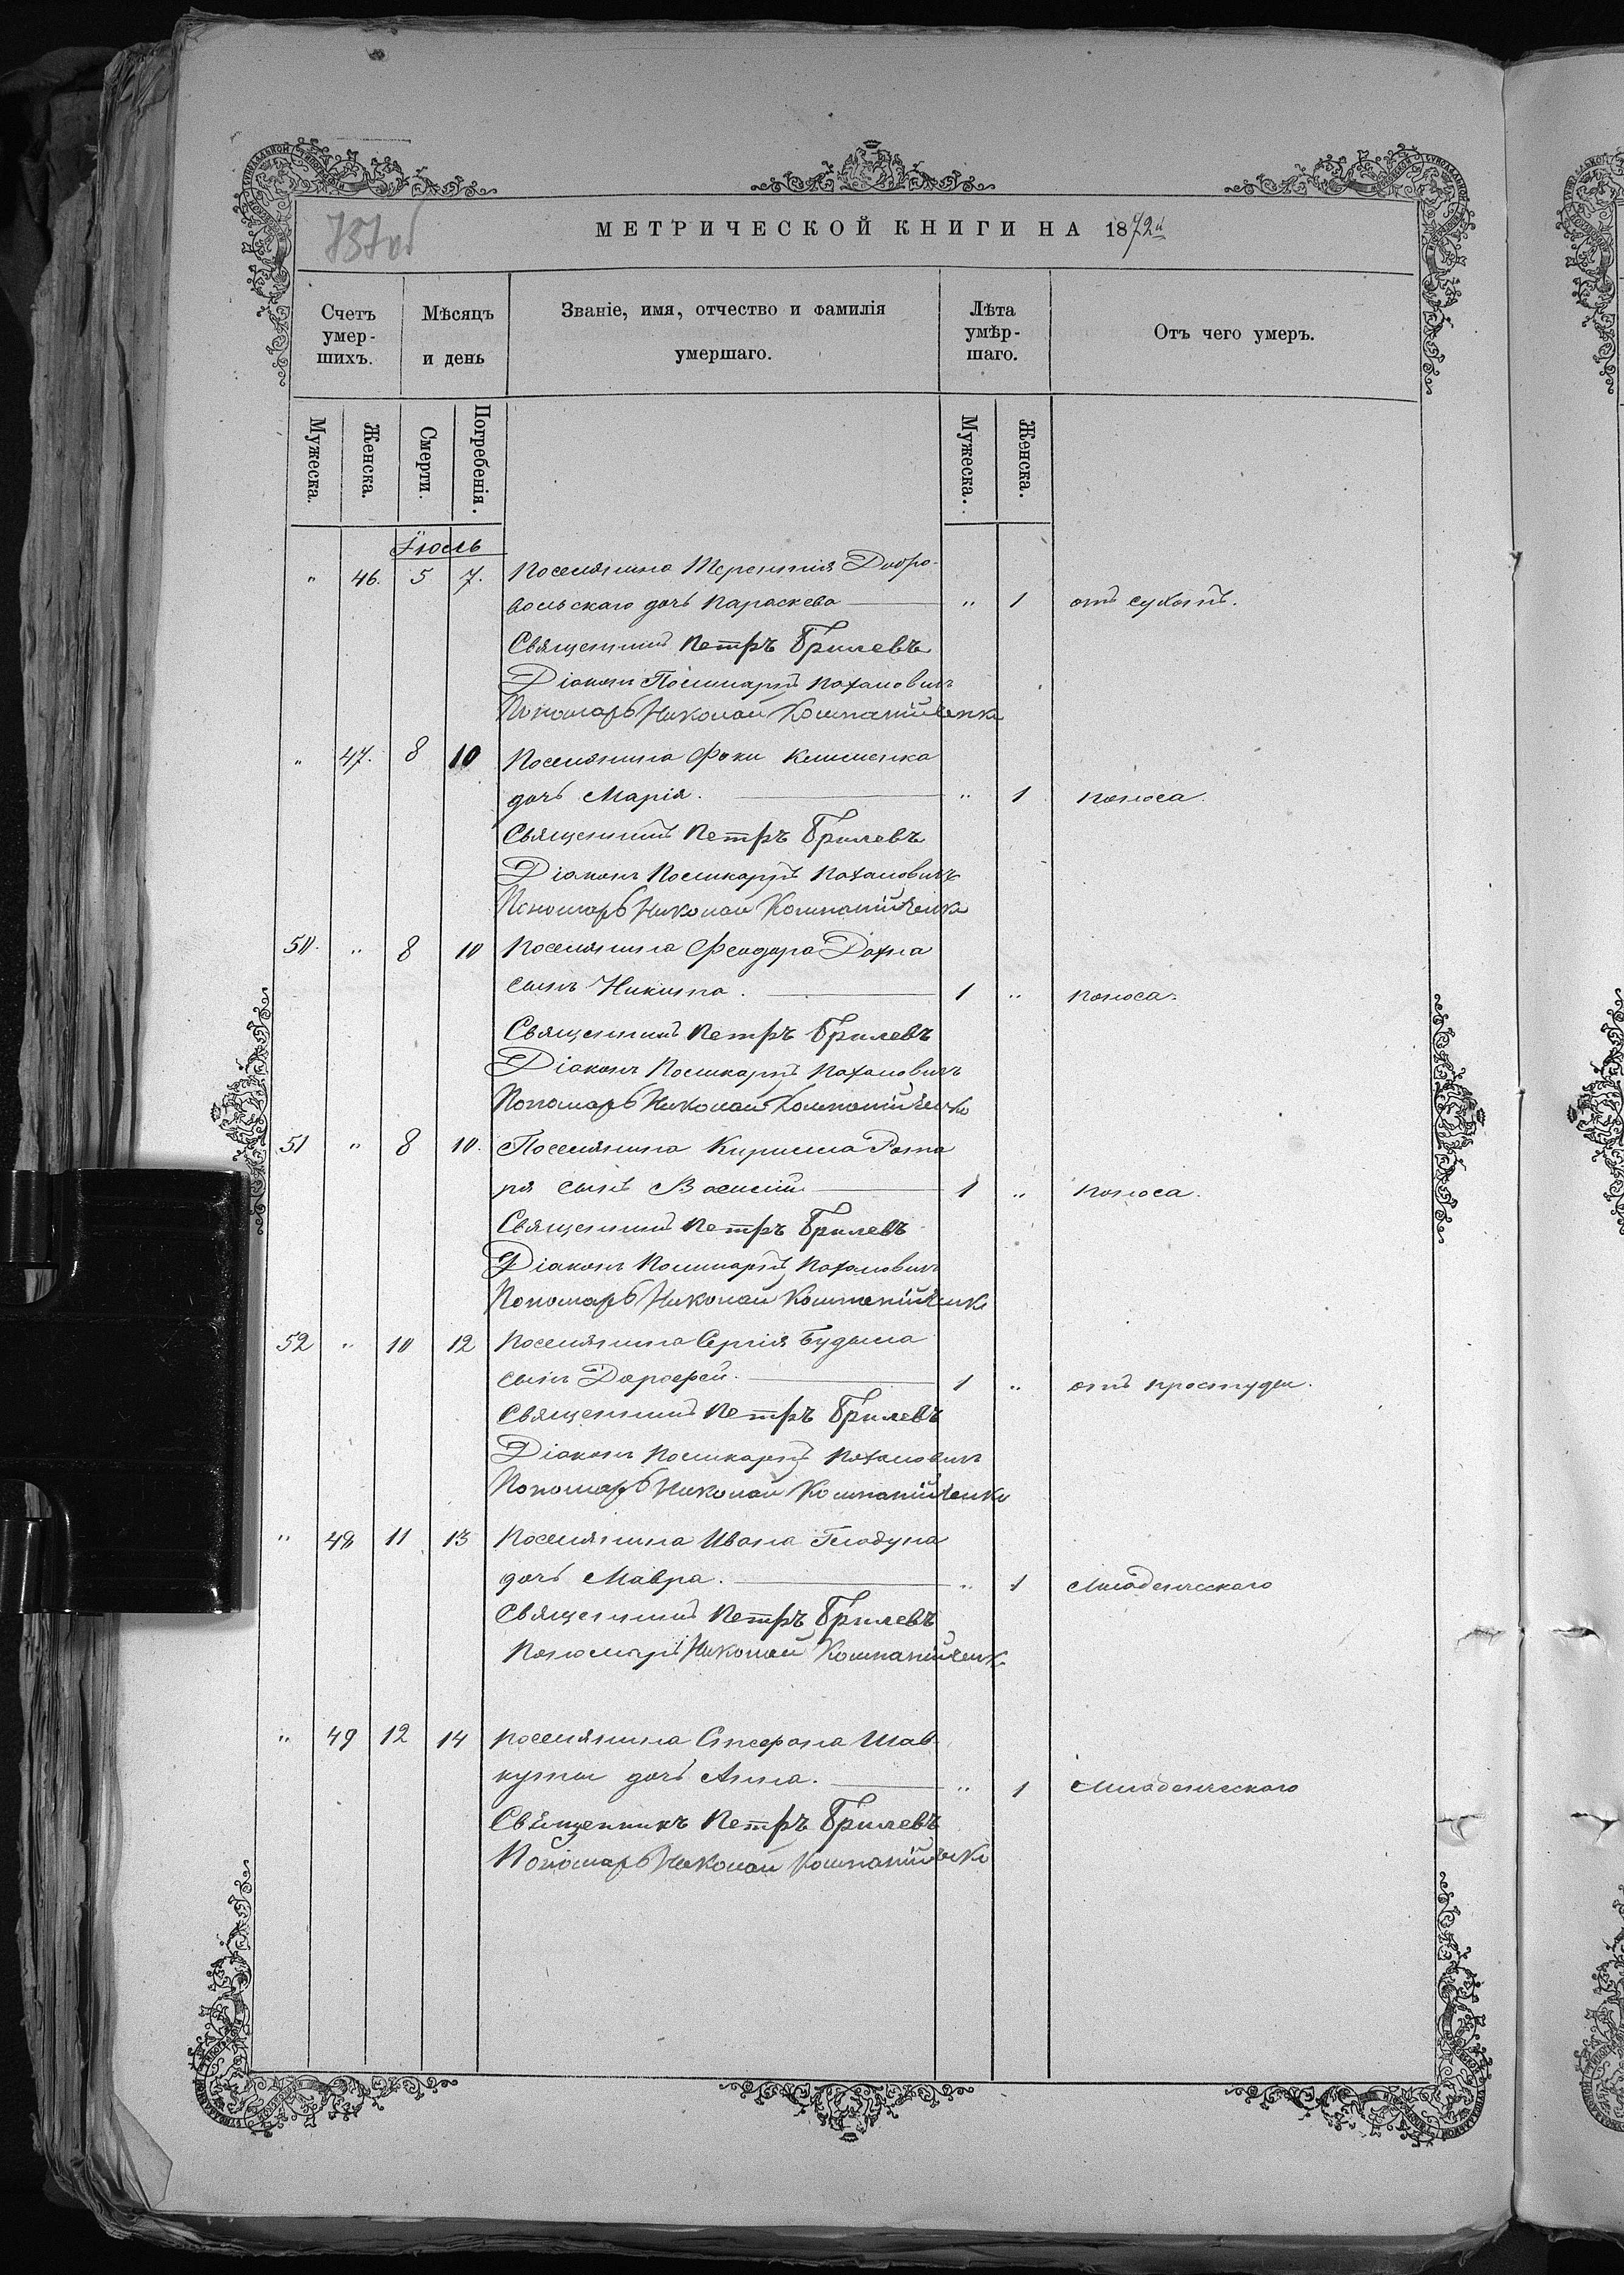 737об
МЕТРИЧЕСКОЙ КНИГИ НА 1872й
Счетъ умер-шихъ. Мѣсяцъ и день Званіе, имя, отчество и фамилія умершаго. Лѣта умѣр-шаго. Отъ чего умеръ.
Мужеска. Женска. Смерти. Погребенія. Мужеска. Женска.
Іюль
" 46. 5 7. Поселянина Терентія Добро-
вольскаго дочь Параскева " 1 отъ сухотъ.
Священникъ Петръ Брилевъ
Діаконъ Поликарпъ Пахаловичъ
Пономарь Николай Компанійченко
" 47. 8 10 Поселянина Фоки Клименка
дочь Марія. " 1 поноса.
Священникъ Петръ Брилевъ
Діаконъ Поликарпъ Пахаловичъ
Пономарь Николай Компанійченко
50. " 8 10 Поселянина Феодора Дахна
сынъ Никита. 1 " поноса.
Священникъ Петръ Брилевъ
Діаконъ Поликарпъ Пахаловичъ
Пономарь Николай Компанійченко
51 " 8 10. Поселянина Кирилла Рота
ря сынъ Василій 1 " поноса.
Священникъ Петръ Брилевъ
Діаконъ Поликарпъ Пахаловичъ
Пономарь Николай Компанійченко
52 " 10 12 Поселянина Сергія Будыла
сынъ Дорофей. 1 " отъ простуды.
Священникъ Петръ Брилевъ
Діаконъ Поликарпъ Пахаловичъ
Пономарь Николай Компанійченко
" 48 11 13 Поселянина Ивана Гладуна
дочь Мавра. " 1 Младенческаго
Священникъ Петръ Брилевъ
Пономарь Николай Компанійченко
" 49 12 14 поселянина Стефана Шав
куты дочь Анна. " 1 Младенческаго
Священникъ Петръ Брилевъ
Пономарь Николай Компанійченко